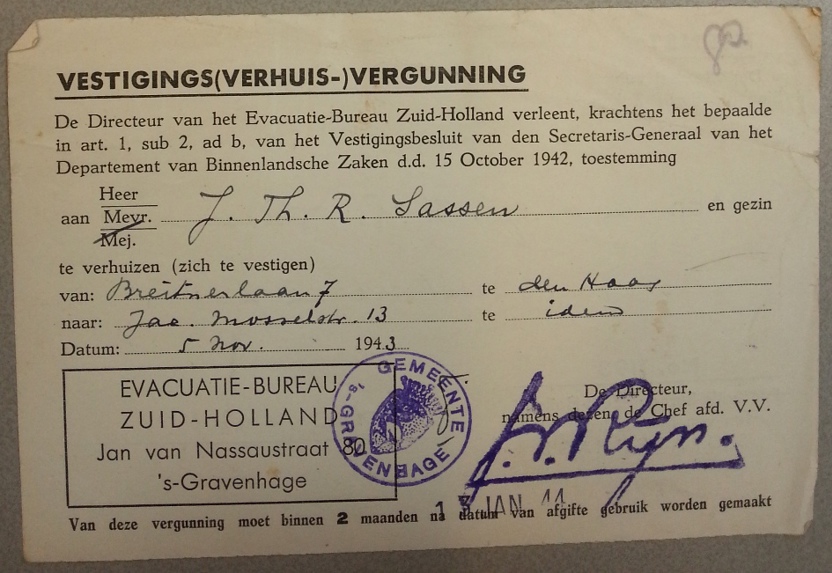 VESTIGINGS(VERHUIS-)VERGUNNING
De Directeur van het Evacuatie-Bureau Zuid-Holland verleent, krachtens het bepaalde
in art. 1, sub 2, ad b, van het Vestigingsbesluit van den Secretaris-Generaal van het
Departement van Binnenlandsche Zaken d.d. 15 October 1942, toestemming
Heer
aan Mevr. J. Th. R. Sassen en gezin
Mej.
te verhuizen (zich te vestigen)
van: Breitnerlaan 7 te den Haag
naar: Jac. Mosselstr. 13 te idem
Datum: 5 Nov. 1943
EVACUATIE-BUREAU
ZUID-HOLLAND
Jan van Nassaustraat 80
's-Gravenhage
GEMEENTE
's-GRAVENHAGE
De Directeur,
namens dezene de Chef afd. V.V.
13 JAN 44
Van deze vergunning moet binnen 2 maanden na datum van afgifte gebruik worden gemaakt